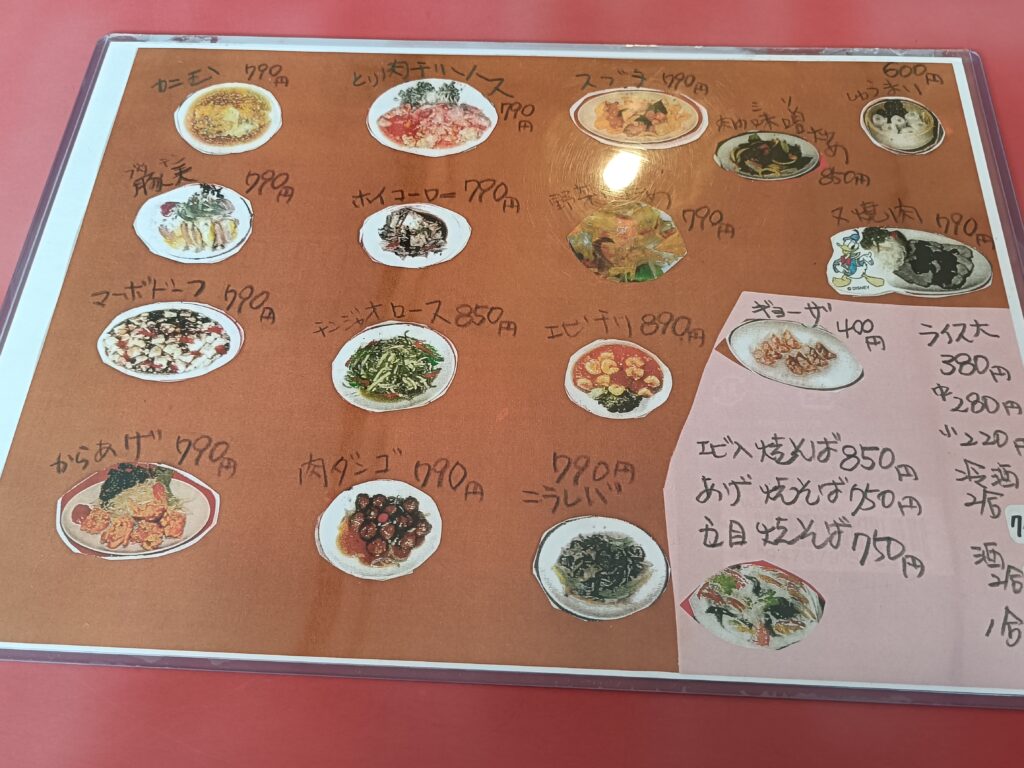 カニ玉 790円
とり肉チリソース 790円
スブタ 790円
肉ミソ味噌炒め 850円
600円
しゅうまい
ブタテン
豚天 790円
ホイコーロー 790円
野菜 790円
叉焼肉 790円
© DISNEY
マーボドーフ 790円
チンジャオロース 850円
エビチリ 890円
ギョーザ 400円
ライス大
380円
中280円
小220円
からあげ 790円
肉ダンゴ 790円
790円
ニラレバ
エビ入焼そば 850円
あげ焼そば 750円
五目焼そば 750円
冷酒
2合
酒
2合
1合
7